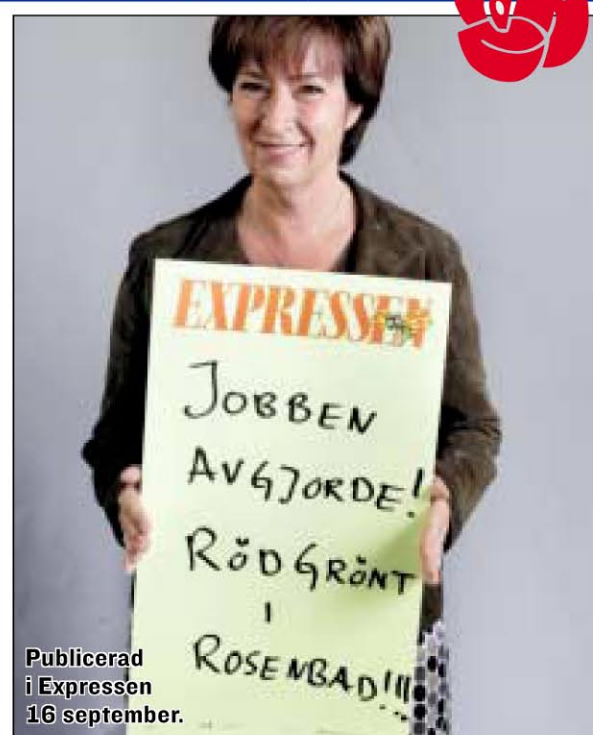 EXPRESSEN
JOBBEN
AVGJORDE!
RÖDGRÖNT
I
ROSENBAD!!!
Publicerad
i Expressen
16 september.